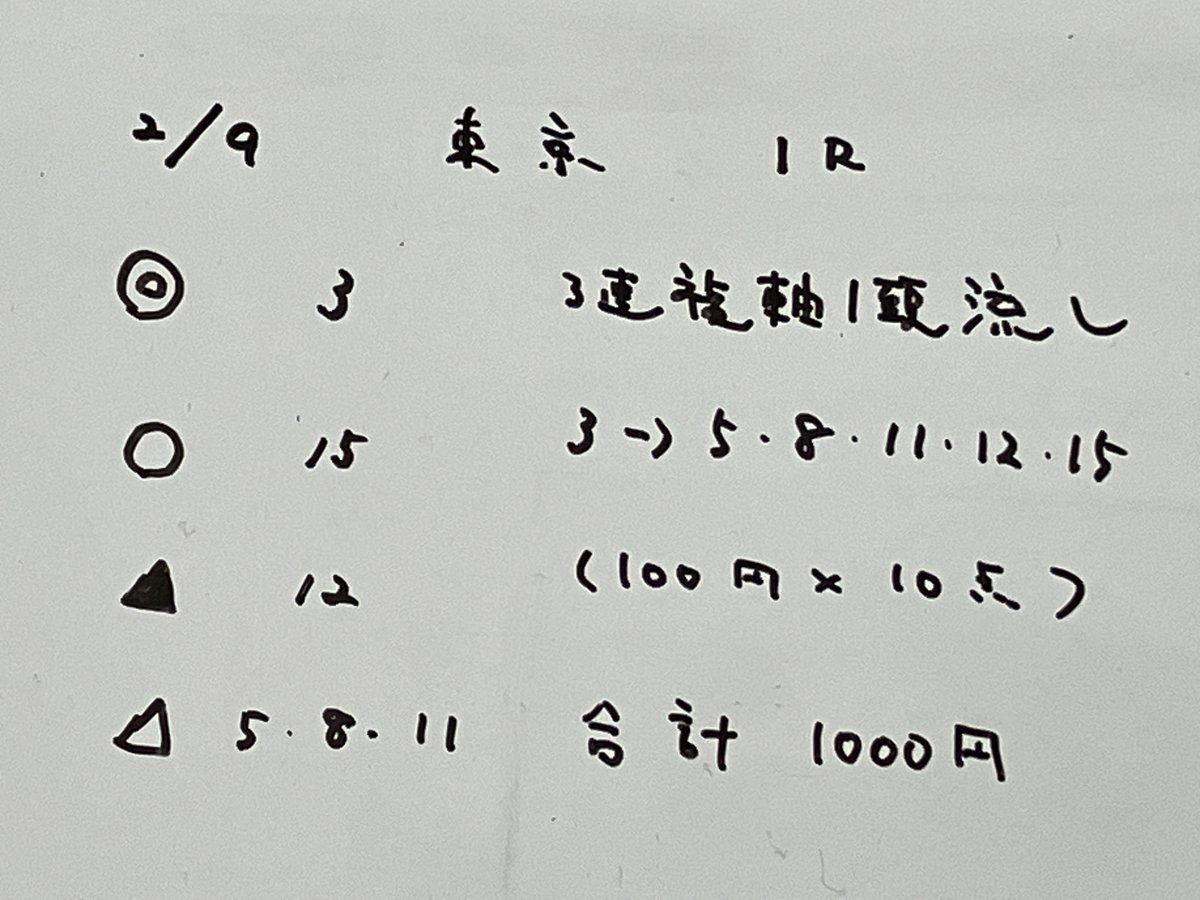 2/9 東京 1R
◎ 3 3連複軸1頭流し
○ 15 3→5・8・11・12・15
▲ 12 (100円×10点)
△ 5・8・11 合計 1000円